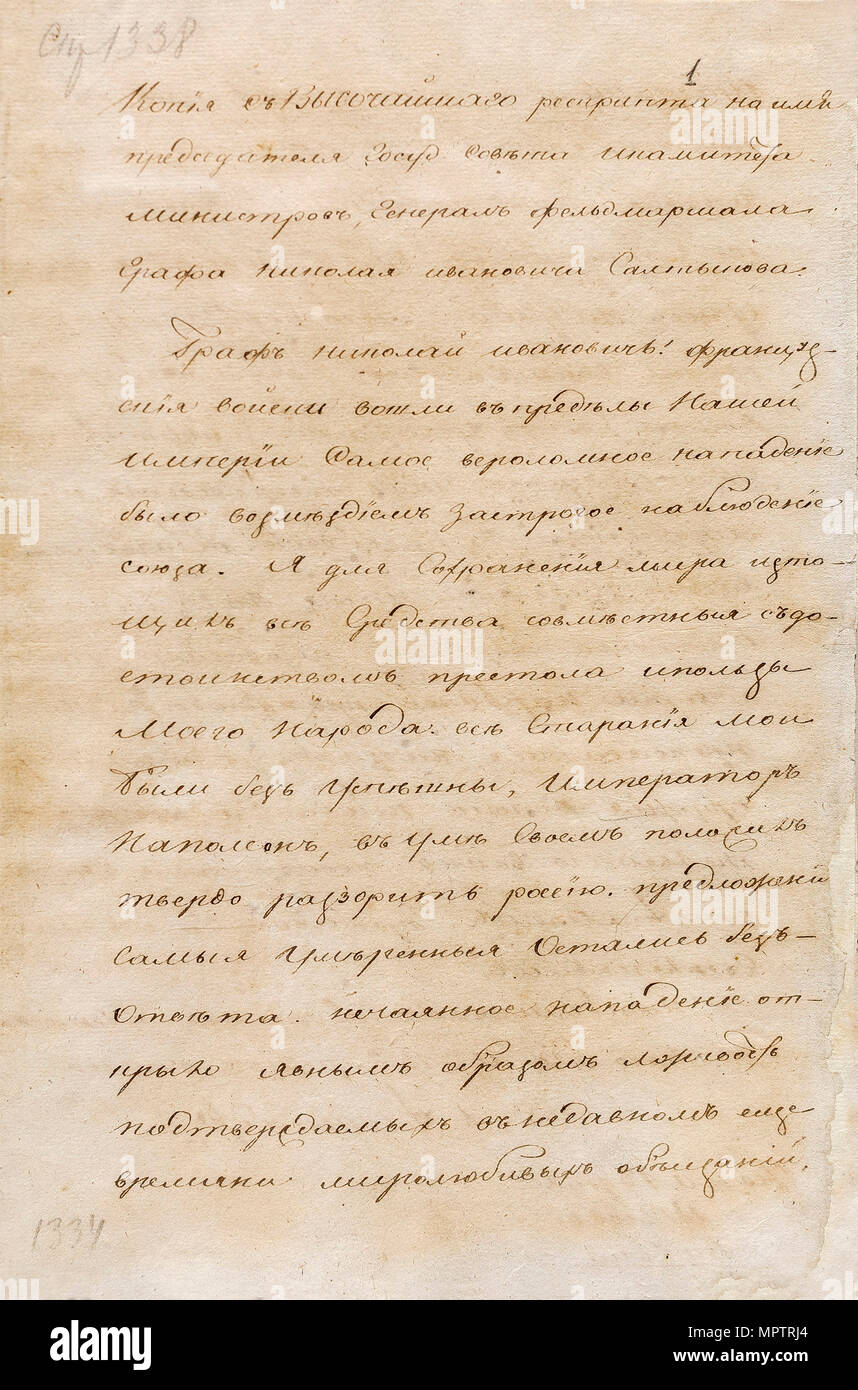 Спр 1338
1
Копія съ Высочайшаго рескрипта на имя
председателя Госуд Совѣта и камитета
министровъ, Генералъ фельдмаршала
Графа Николая Ивановича Салтыкова.
Графъ Николай Ивановичь! француз-
скія войски вошли въ пределы Нашей
Имперіи Самое вероломное нападеніе
было возмездіемъ за строгое наблюденіе
союза. Я для Сохраненія мира изто-
щилъ все Средства совместныя съ до-
стоинствомъ престола и пользы
Моего Народа. все Старанія мои
были безъ успешны, Императоръ
Наполеонъ, въ уме Своемъ положилъ
твердо раззорить росію. предложеніи
самыя умеренныя Остались безъ-
Ответа. нечаянное нападеніе от-
крыло явнымъ образомъ лживость
подтверждаемыхъ въ недавномъ еще
времяни миролюбивыхъ обещаній,
1334
alamy
alamy stock photo
MPTRJ4
www.alamy.com